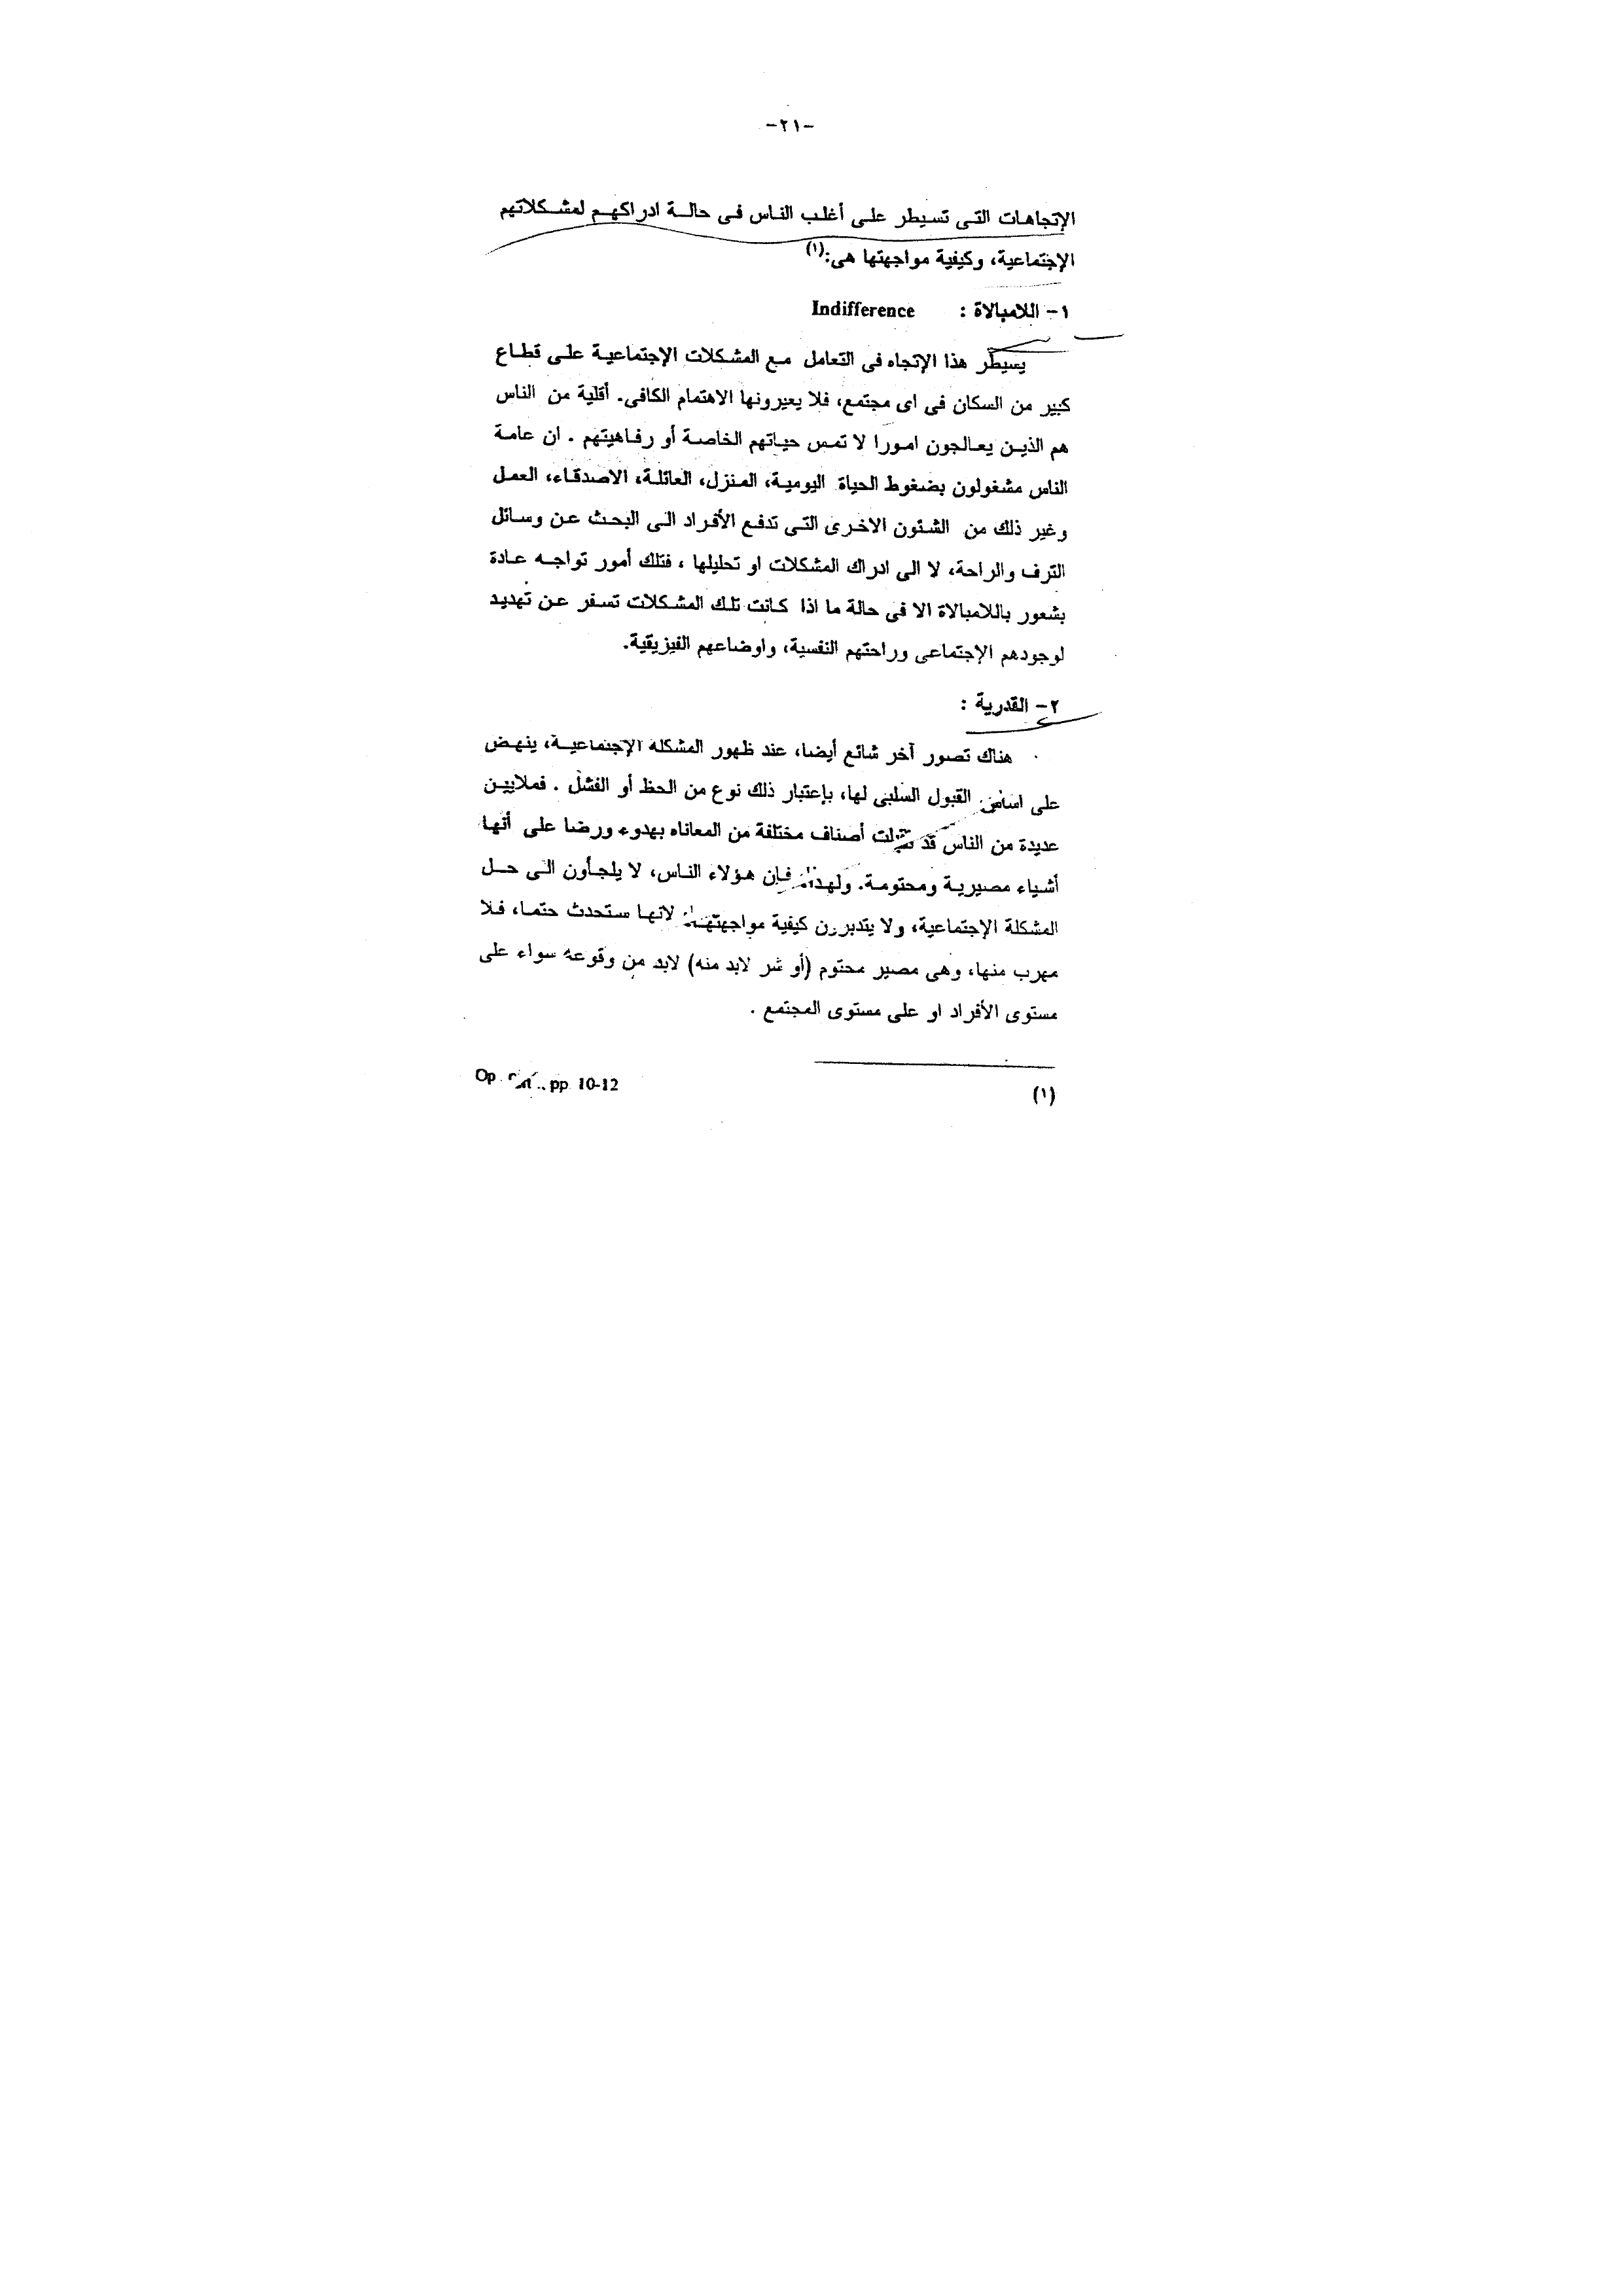 -٢١-
الإتجاهات التى تسيطر على أغلب الناس فى حالة ادراكهم لمشكلاتهم
الإجتماعية، وكيفية مواجهتها هى:(١)
١- اللامبالاة : Indifference
يسيطر هذا الإتجاه فى التعامل مع المشكلات الإجتماعية على قطاع
كبير من السكان فى اى مجتمع، فلا يعيرونها الاهتمام الكافى. أقلية من الناس
هم الذين يعالجون امورا لا تمس حياتهم الخاصة أو رفاهيتهم . ان عامة
الناس مشغولون بضغوط الحياة اليومية، المنزل، العائلة، الاصدقاء، العمل
وغير ذلك من الشئون الاخرى التى تدفع الأفراد الى البحث عن وسائل
الترف والراحة، لا الى ادراك المشكلات او تحليلها ، فتلك أمور تواجه عادة
بشعور باللامبالاة الا فى حالة ما اذا كانت تلك المشكلات تسفر عن تهديد
لوجودهم الإجتماعى وراحتهم النفسية، واوضاعهم الفيزيقية.
٢- القدرية :
هناك تصور آخر شائع أيضا، عند ظهور المشكلة الإجتماعية، ينهض
على اساس القبول السلبى لها، بإعتبار ذلك نوع من الحظ أو الفشل . فملايين
عديدة من الناس قد أصناف مختلفة من المعاناه بهدوء ورضا على أنها
أشياء مصيرية ومحتومة. ولهذا فإن هؤلاء الناس، لا يلجأون الى حل
المشكلة الإجتماعية، ولا يتدبرون كيفية مواجهتها لانها ستحدث حتما، فلا
مهرب منها، وهى مصير محتوم (أو شر لابد منه) لابد من وقوعه سواء على
مستوى الأفراد او على مستوى المجتمع .
(١) Op. pp. 10-12